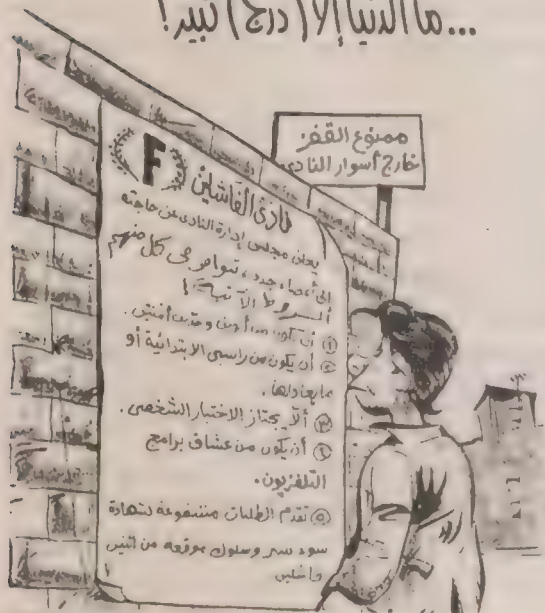 ...ما الدنيا إلا (درج) كبير!
ممنوع القفز
خارج أسوار النادى
F
نادى الفاشلين
يعلن مجلس إدارة النادى عن حاجته
إلى أعضاء جدد، تتوافر فى كل منهم
الشروط الآتية:
① أن يكون من أبوين وجدين أميين.
② أن يكون من راسبى الابتدائية أو
ما يعادلها.
③ ألا يجتاز الاختبار الشخصى.
④ أن يكون من عشاق برامج
التلفزيون.
⑤ تقدم الطلبات مشفوعة لشهادة
سوء سير وسلوك موقعه من اثنين
فاشلين